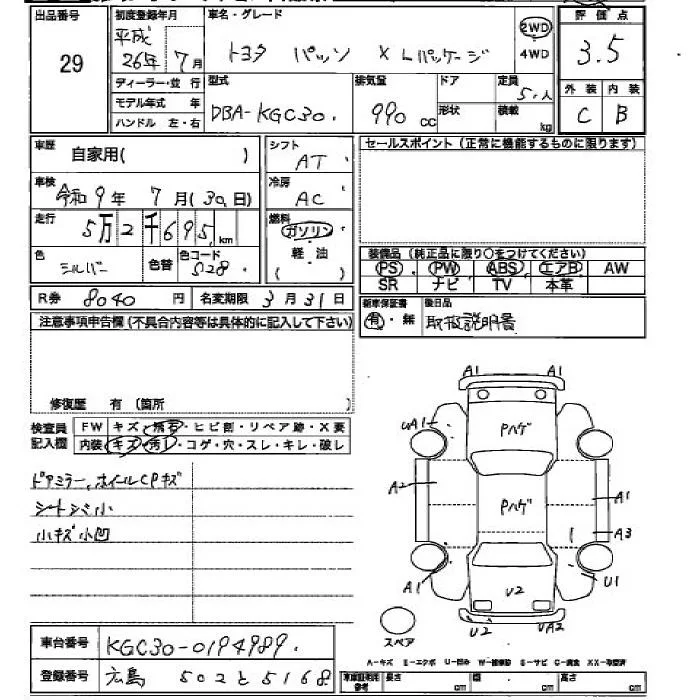 出品番号 初度登録年月 車名・グレード 評価点
29 平成 26年 7月 トヨタ パッソ X Lパッケージ 2WD 4WD 3.5
ディーラー・並行 型式 排気量 ドア 定員 外装 内装
モデル年式 年 DBA-KGC30. 990 cc 形状 5人 積載 kg C B
ハンドル 左・右
車歴 自家用( ) シフト AT セールスポイント(正常に機能するものに限ります)
車検 令和9年 7月(30日) 冷房 AC
走行 5万2千695 km 燃料 ガソリン
軽・油
( )
色 シルバー 色替 色コード S28. 装備品(純正品に限り○をつけてください)
PS PW ABS エアB AW
SR ナビ TV 本革
R券 8040円 名変期限 3月31日 新車保証書 後日品
有・無 取扱説明書
注意事項申告欄(不具合内容等は具体的に記入して下さい)
修復歴 有(箇所 )
検査員 FW キズ・飛石・ヒビ割・リペア跡・X要
記入欄 内装 キズ・汚れ・コゲ・穴・スレ・キレ・破レ
ドアミラー,ホイールCPキズ
シートシミ小
小キズ小凹
A1 A1
UA1 Pハゲ
A2 Pハゲ A1
A3
A1 U2 U1
U2 UA2
スペア
車台番号 KGC30-0194989.
登録番号 広島 502 と 5168
A-キズ E-エクボ U-凹み W-補修跡 S-サビ C-腐食 XX-交換済
車庫証明用参考 長さ cm 幅 cm 高さ cm